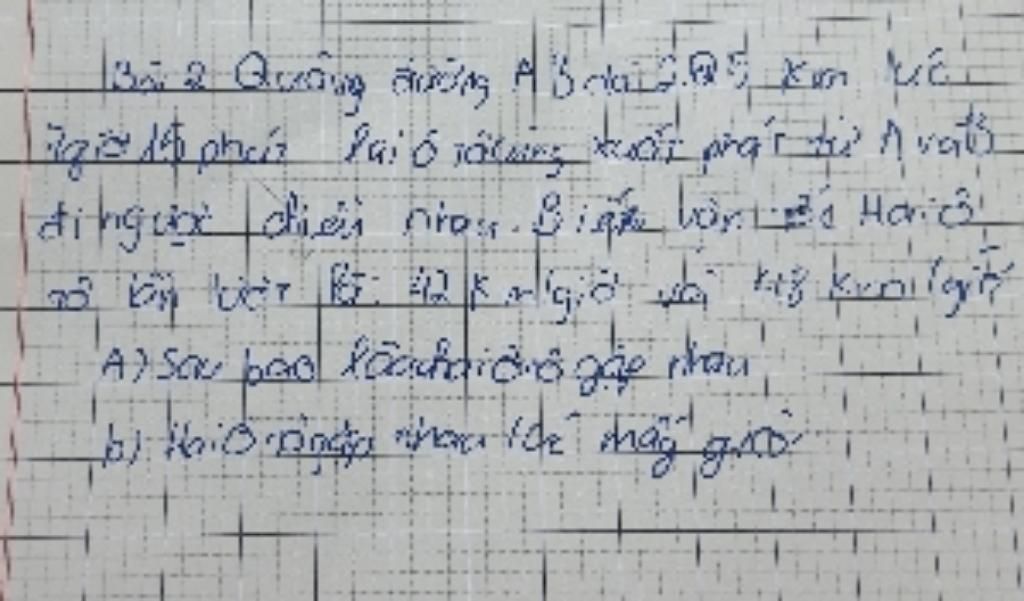 Bài 2 Quãng đường AB dài 225 km lúc
7 giờ 15 phút hai ô tô cùng xuất phát từ A và B
đi ngược chiều nhau. Biết vận tốc Hai ô
tô lần lượt là 42 km/giờ và 48 km/giờ
A) Sau bao lâu hai ô tô gặp nhau
b) Hai ô tô gặp nhau lúc mấy giờ